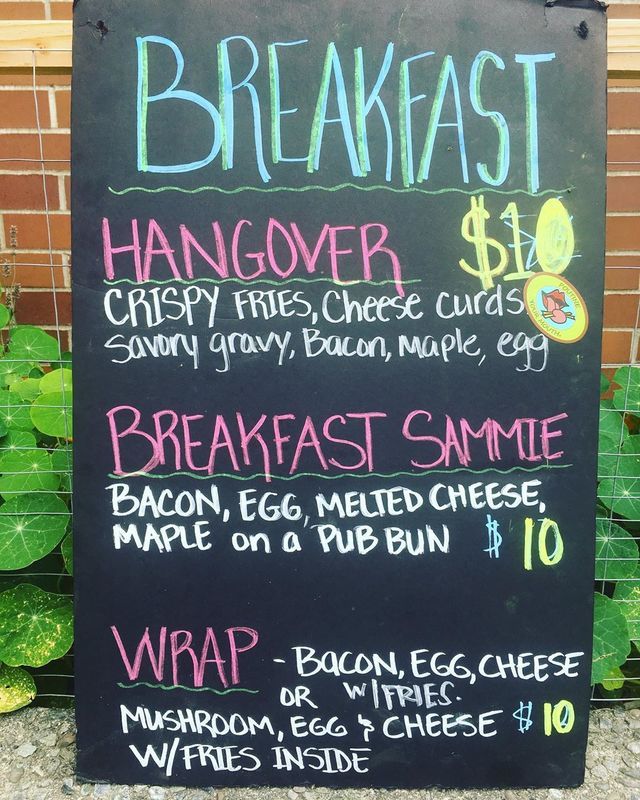 BREAKFAST
HANGOVER $10
CRISPY FRIES, Cheese curds
Savory gravy, Bacon, Maple, egg
BREAKFAST SAMMIE
BACON, EGG, MELTED CHEESE,
MAPLE on a PUB BUN $10
WRAP - BACON, EGG, CHEESE
OR W/FRIES.
MUSHROOM, EGG & CHEESE $10
W/FRIES INSIDE